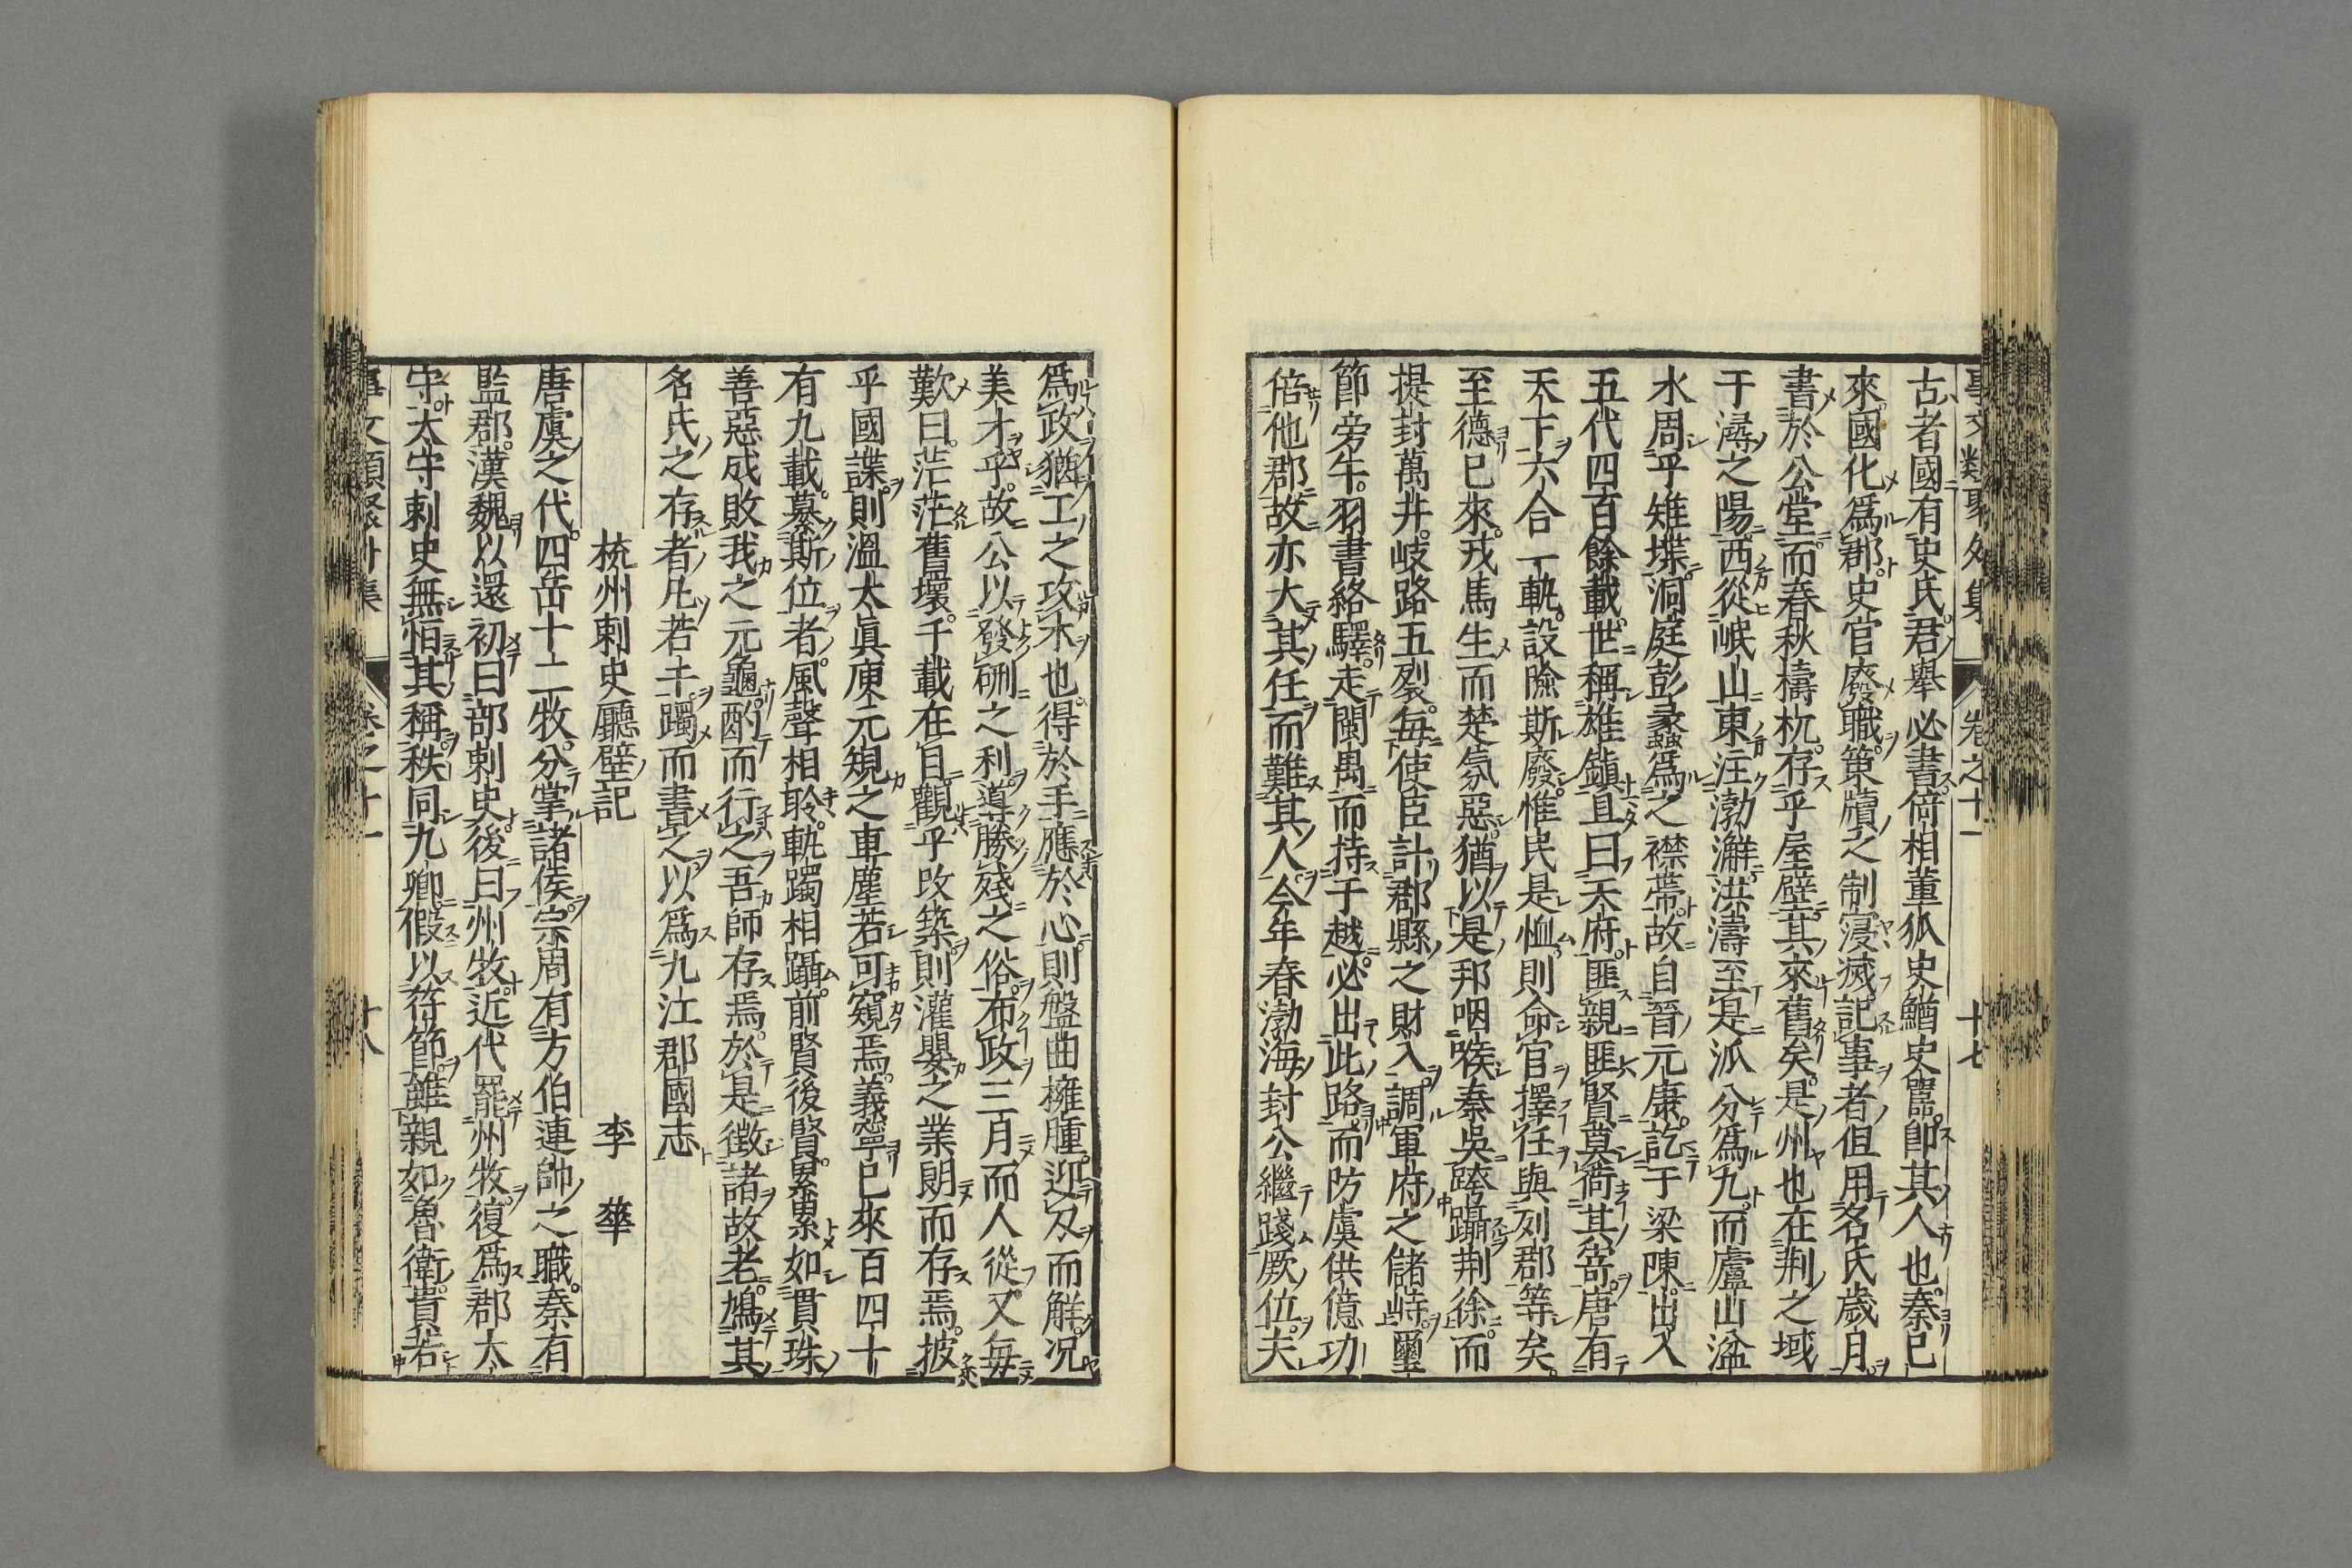 事文類聚外集 卷之十一 十七
古者國有史氏君舉必書倚相董狐史鰌史嚚卽其人也秦已
來國化爲郡史官廢職策牘之制寖滅記事者但用名氏歲月
書於公堂而春秋檮杌存乎屋壁其來舊矣是州也在荆之域
于潯之陽西從岷山東注渤澥洪濤至是泒分爲九而廬山湓
水周乎雉堞洞庭彭蠡爲之襟帶故自晉元康訖于梁陳出入
五代四百餘載世稱雄鎮且曰天府匪親匪賢莫荷其寄唐有
天下六合一軌設險斯廢惟民是恤則命官擇任與列郡等矣
至德已來戎馬生而楚氛惡猶以是邦咽喉秦吳跨躡荆徐而
提封萬井岐路五裂每使臣計郡縣之財入調軍府之儲峙璽
節旁午羽書絡驛走閩禺而持于越必出此路而防虞供億功
倍他郡故亦大其任而難其人今年春渤海封公繼踐厥位夫
爲政猶工之攻木也得於手應於心則盤曲擁腫迎刃而解况
美才乎故公以發硎之利導勝殘之俗布政三月而人從又每
歎曰茫茫舊壤千載在目觀乎攺築則灌嬰之業朗而存焉披
乎國諜則溫太眞庾元規之車塵若可窺焉義寧已來百四十
有九載纂斯位者風聲相聆軌躅相躡前賢後賢累累如貫珠
善惡成敗我之元龜酌而行之吾師存焉於是徵諸故老鳩其
名氏之存者凡若干躅而書之以爲九江郡國志
杭州刺史廳壁記 李華
唐虞之代四岳十二牧分掌諸侯宗周有方伯連帥之職秦有
監郡漢魏以還初曰部刺史後曰州牧近代罷州牧復爲郡太
守大守刺史無恒其稱秩同九卿假以符節雖親如魯衛貴若
事文類聚外集 卷之十一 十八